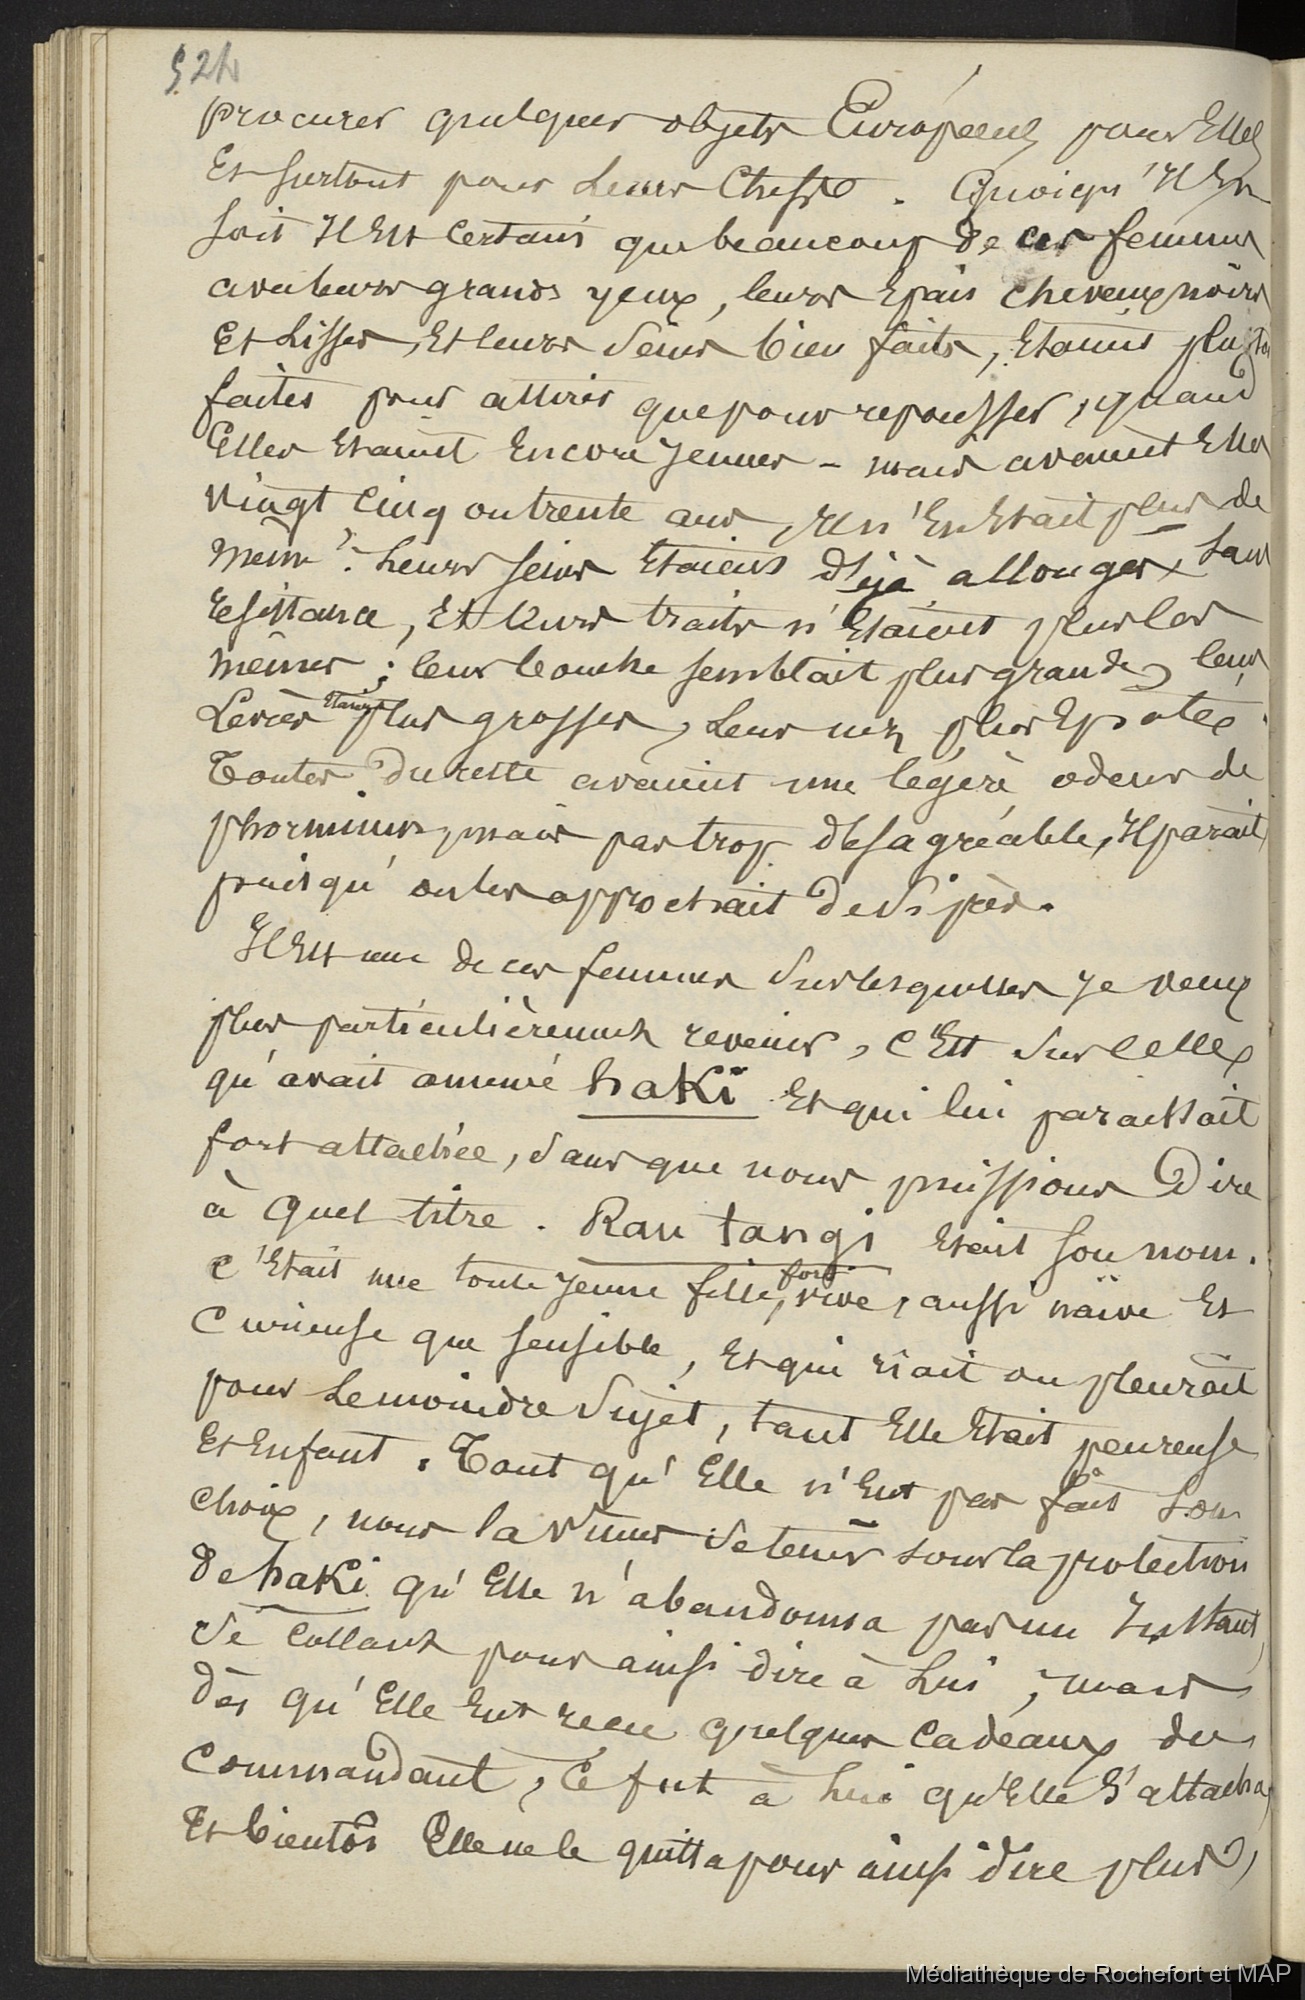 524
procurer quelques objets Européens pour Elles
Et surtout pour Leurs Chefs. Quoiqu'Il En
soit Il Est Certain que beaucoup de ces femmes
avec leurs grands yeux, leurs Epais cheveux noirs
Et Lisses, Et leurs Seins bien faits, Etaient plutôt
faites pour attirer que pour repousser, quand
Elles Etaient Encore Jeunes - mais avaient Elles
vingt Cinq ou trente ans, Il n'En Etait plus de
même. Leurs seins Etaient déjà allongés, Sans
resistance, Et leurs traits n'Etaient plus les
mêmes; leur bouche semblait plus grande, leurs
Levres Etaient plus grosses, Leur nez plus Epaté.
Toutes Du reste avaient une légère odeur de
phormium, mais pas trop désagréable, Il parait
puisqu'on les approchait De Si près.
Il Est une de ces femmes Sur lesquelles Je veux
plus particulièrement revenir, C'Est Sur Celle
qu'avait amené haKi Et qui lui paraissait
fort attachée, Sans que nous puissions Dire
à Quel titre. Rau tangi Etait son nom.
C'Etait une toute Jeune fille, fort vive, aussi naïve Et
Curieuse que sensible, Et qui riait ou pleurait
pour Le moindre Sujet, tant Elle Etait peureuse
Et Enfant. Tant qu'Elle n'Eut pas fait Son
Choix, nous la vimes Se tenir sous la protection
De haKi qu'Elle n'abandonna pas un Instant,
Se Collant pour ainsi dire à Lui; mais
Dès qu'Elle Eut recu quelques Cadeaux du
Commandant, Ce fut à Lui qu'Elle S'attacha,
Et bientôt Elle ne le quitta pour ainsi dire plus,
Médiathèque de Rochefort et MAP